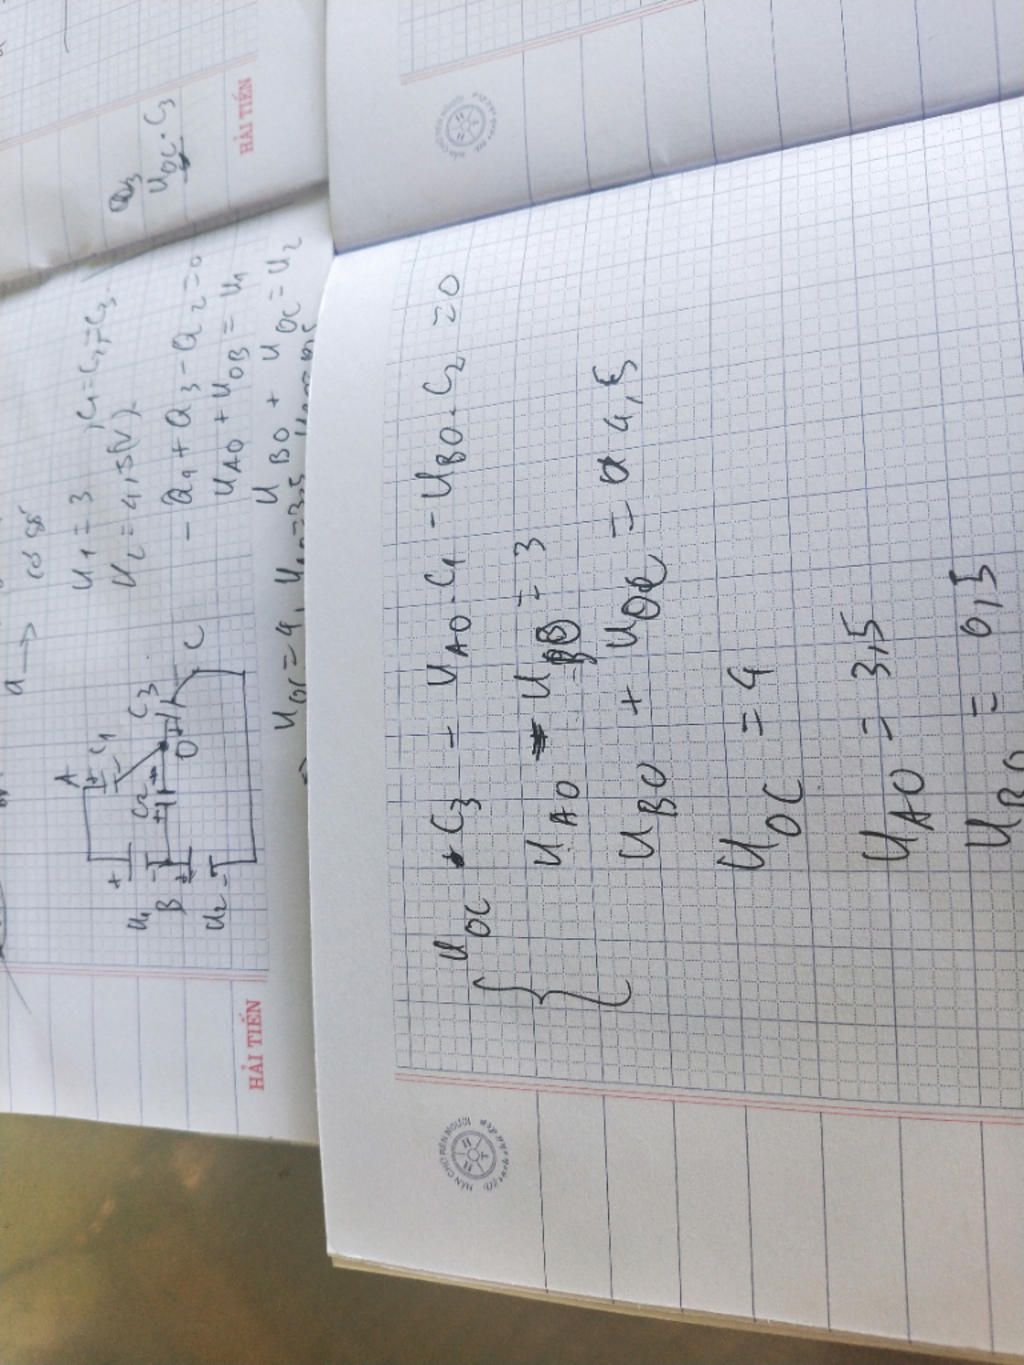 a → có số
U1 = 3 , C1 = C2 = C3
U2 = 4,5(V)
- Q1 + Q3 - Q2 = 0
UAO + UOB = U1
U BO + UOC = U2
UOC = 4,
A
C1
C2
C3
O
C
+
U1
B
U2
-
Q3
UOC . C3
HẢI TIẾN
HẢI TIẾN
UOC . C3 - UAO . C1 - UBO . C2 = 0
UAO - UBO = 3
UBO + UOC = 4,5
UOC = 4
UAO = 3,5
UBO = 0,5